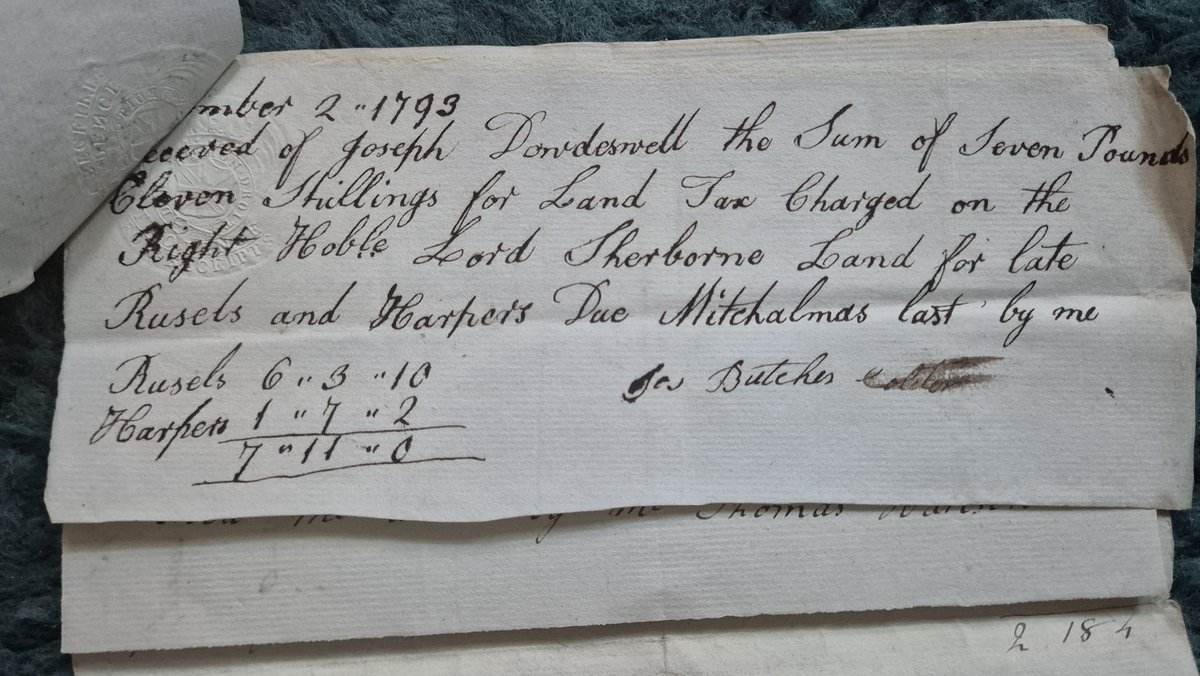 mber 2 " 1793
eceved of Joseph Dowdeswell the Sum of Seven Pounds
Eleven Shillings for Land Tax Charged on the
Right Hoble Lord Sherborne Land for late
Rusels and Harpers Due Mitchalmas last by me
Rusels 6 " 3 " 10
Jos Butcher
Harpers 1 " 7 " 2
7 " 11 " 0
by me Thomas
2 18 4